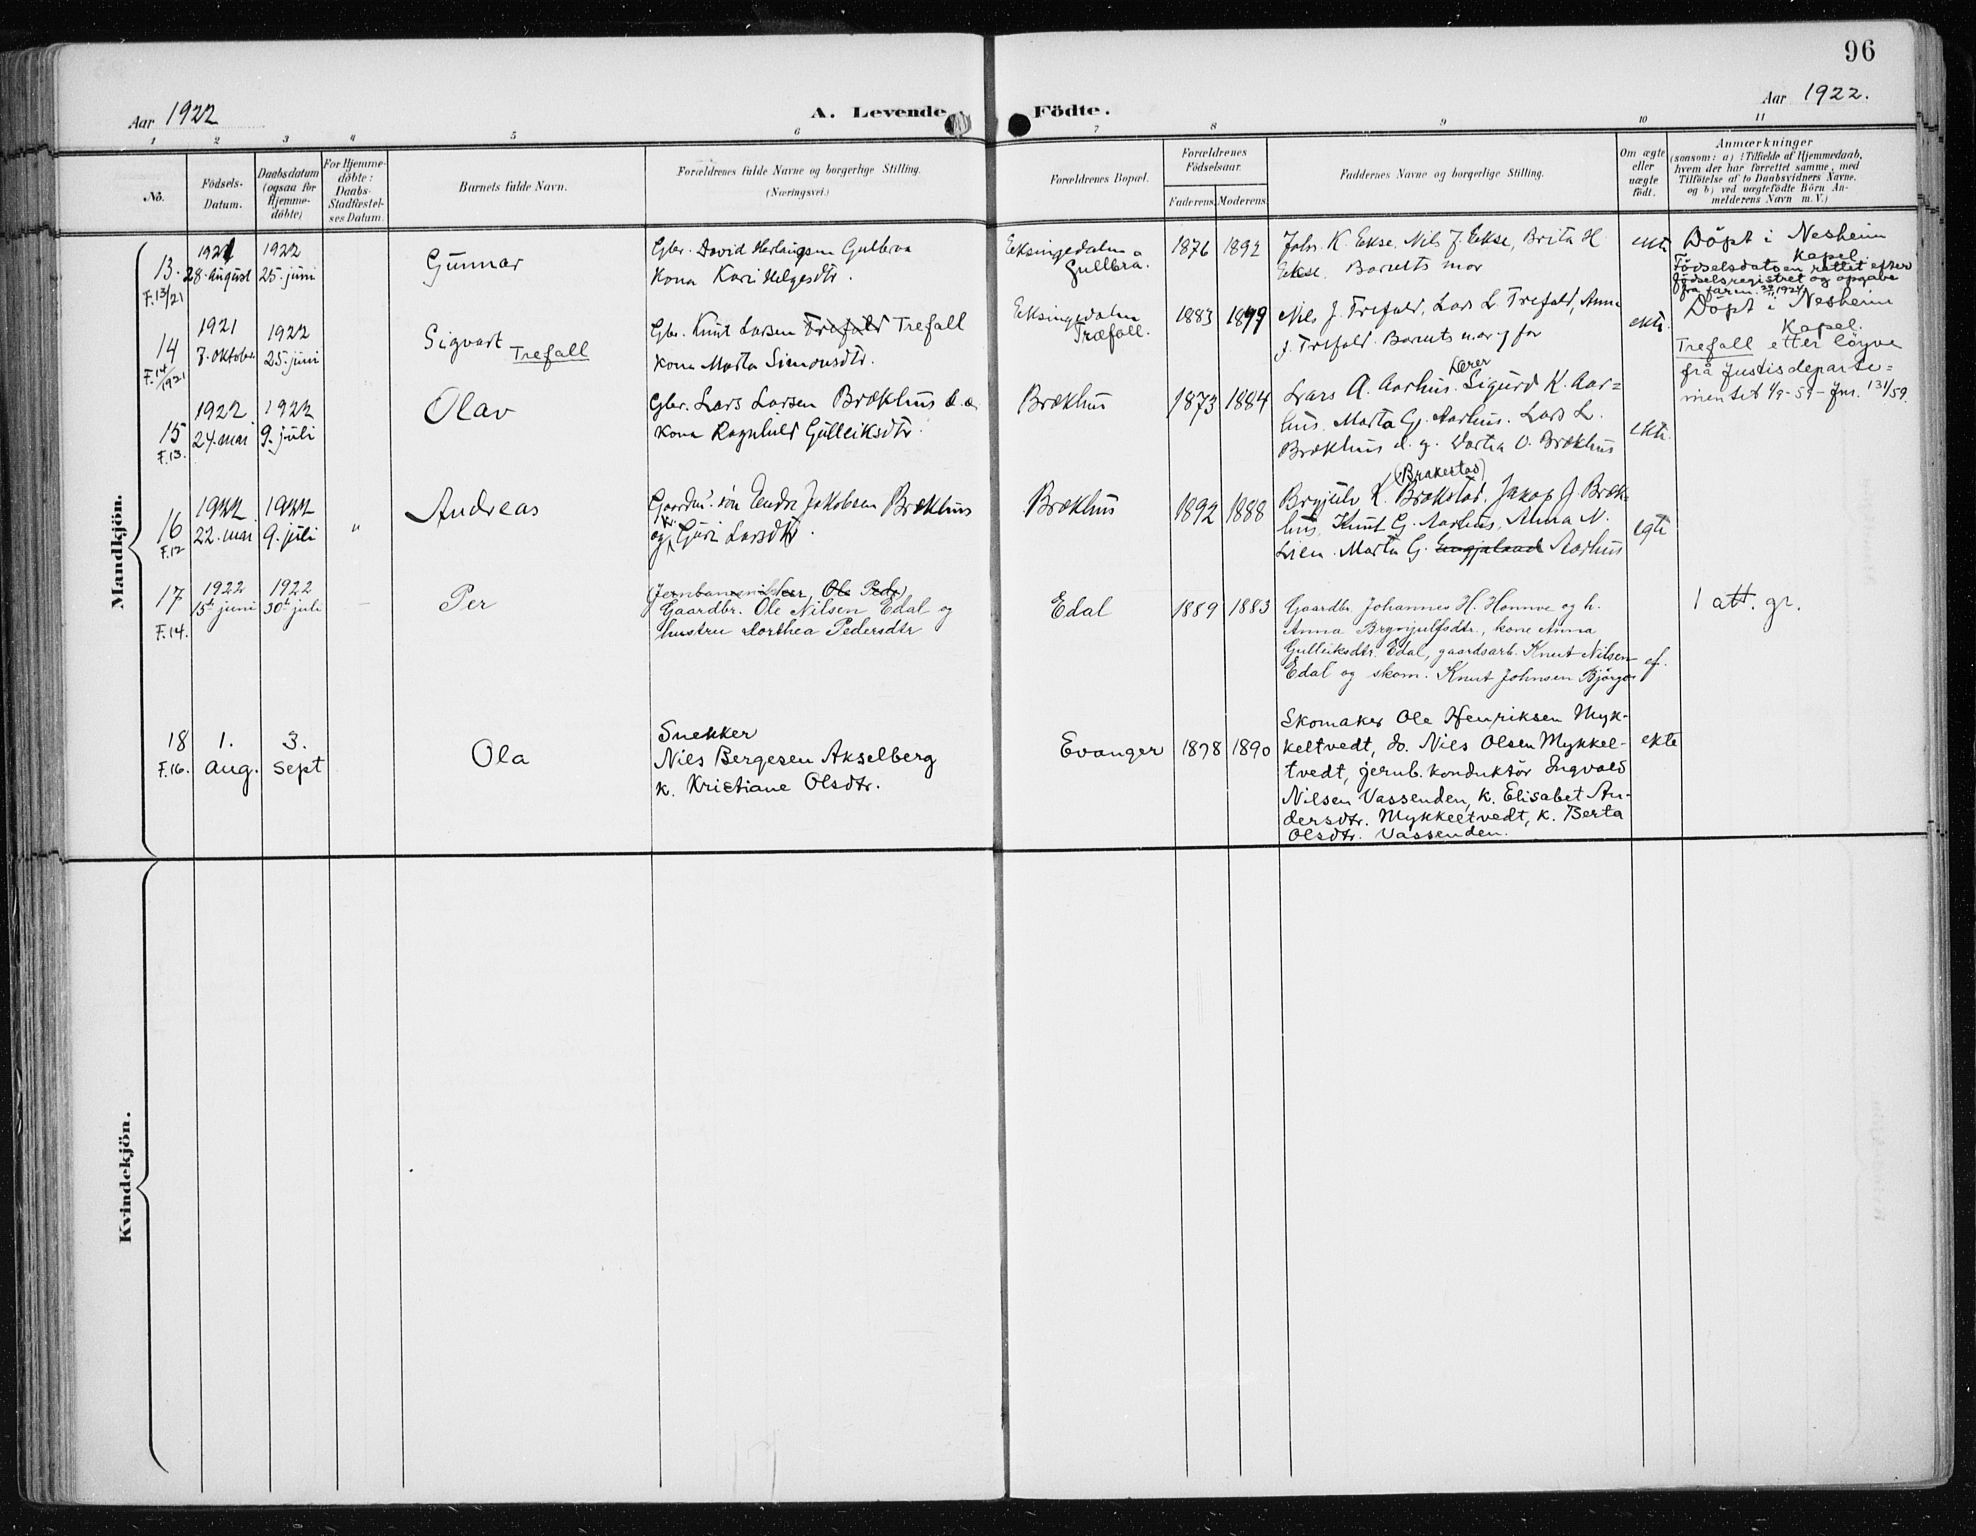 96
Aar 1922
A. Levende
Födte.
Aar 1922.
1 2 3 4 5 6 7 8 9 10 11
No.
Födsels-
Datum.
Daabsdatum
(ogsaa for
Hjemme-
døbte)
For Hjemme-
döbte:
Daabs-
Stadfæstel-
ses Datum.
Barnets fulde Navn.
Forældrenes fulde Navne og borgerlige Stilling.
(Næringsvei.)
Forældrenes Bopæl.
Forældrenes
Födselsaar.
Faderens. Moderens.
Faddernes Navne og borgerlige Stilling.
Om ægte
eller
uægte
födt.
Anmærkninger
(saasom: a) i Tilfælde af Hjemmedaab,
hvem der har forrettet samme, med
Tilföielse af to Daabsvidners Navne,
og b) ved uægtefödte Börn An-
melderens Navn m. V.)
Mandkjön.
13.
F.13/21
1921
28. august
1922
25. juni
Gunnar
Gbr. David Herlaugsen Gulbraa
Kona Kari Helgesdtr.
Eksingedalen
Gullbrå.
1876 1892
Johs. K. Ekse, Nils J. Ekse, Brita H.
Ekse. Barnets mor
ekte
Döpt i Nesheim
Kapel.
Födselsdatoen rettet efter
födselsregistret og opgave
fra faren.
14
F.14/1921
1921
7. oktober
1922
25. juni
Sigvart Trefall
Gbr. Knut Larsen Trefald Trefall
Kona Marta Simonsdtr.
Eksingedalen
Træfall.
1883 1899
Nils J. Trefald, Lars L. Trefald, Anna
J. Trefald. Barnets mor og far
ekte.
Döpt i Nesheim
Kapel.
Trefall etter löyve
frå Justisdeparte=
mentet 1/9-59 - Jnr. 131/59.
15
F.13.
1922
24. mai
1922
9. juli
Olav
Gbr. Lars Larsen Brækhus d. e.
Kona Ragnhild Gulleiksdtr.
Brækhus
1873 1884
Lærer
Lars A. Aarhus. Sigurd K. Aar=
hus. Marta G. Aarhus. Lars L.
Brækhus d. y. Dortea O. Brækhus
ekte.
16
F.12
1922
22. mai
1922
9. juli
"
Andreas
Gaardm. søn Endre Jakobsen Brækhus
og Guri Larsdtr.
Brækhus
1892 1888
(Brakestad)
Brynjulv K. Brækstad, Jakop J. Bræk-
hus, Knut G. Aarhus, Anna N.
Lien. Marta G. Aarhus
egte
17
F.14.
1922
15de juni
1922
30te juli
–
Per
Gaardbr. Ole Nilsen Edal og
hustru Dorthea Pedersdtr
Edal
1889 1883
Gaardbr. Johannes H. Honnve og h.
Anna Brynjulfsdtr., kone Anna
Gulleiksdtr. Edal, gaardsarb. Knut Nilsen
Edal og skom. Knut Johnsen Björgo
ef.
1 att. gr.
18
F.16.
1.
aug.
3.
sept
Ola
Snekker
Nils Bergesen Akselberg
k. Kristiane Olsdtr.
Evanger
1878 1890
Skomaker Ole Henriksen Myk-
keltvedt, do. Nils Olsen Mykkel-
tvedt, jernb. konduktör Ingvald
Nilsen Vassenden, k. Elisabet An-
dersdtr. Mykkeltvedt, k. Berta
Olsdtr. Vassenden.
ekte
Kvindekjön.